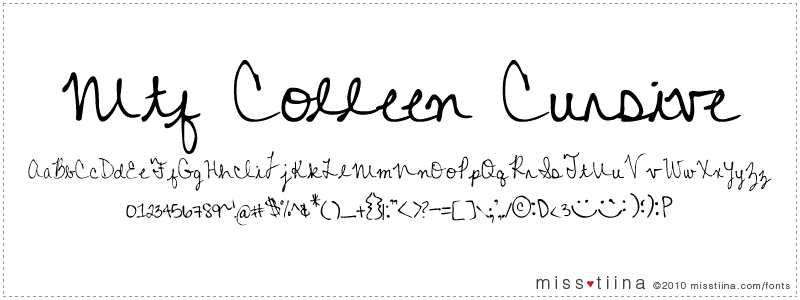 Mtf Colleen Cursive
AaBbCcDdEeFfGgHhIiJjKkLlMmNnOoPpQqRrSsTtUuVvWwXxYyZz
0123456789~!@#$%^&*()_+{}|:"<>?-=[]\;',./©:D<3
miss♥tiina ©2010 misstiina.com/fonts